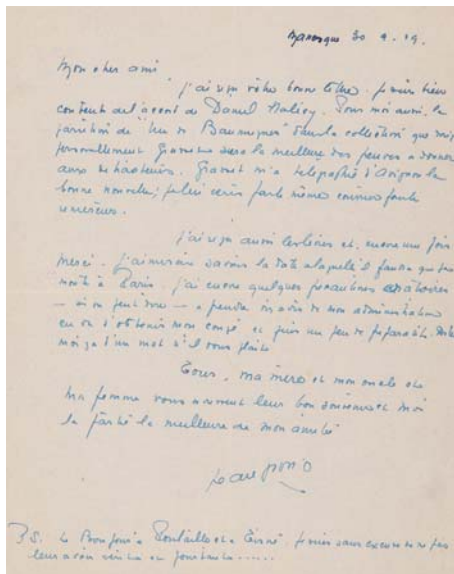 Manosque 30 9. 29.
Mon cher ami
j'ai reçu votre bonne lettre. je suis bien
content de l'accent de Daniel Halévy. Pour moi aussi, la
parution de "Un de Baumugnes" dans la collection que
personnellement Grasset sera la meilleure des preuves à donner
aux détracteurs. Grasset m'a télégraphié d'Avignon la
bonne nouvelle; je lui écris par le même courrier pour le
remercier.
j'ai reçu aussi les livres et, encore une fois
merci. j'aimerais savoir la date à laquelle il faudra que je
monte à Paris. j'ai encore quelques précautions oratoires
— si on peut dire — à prendre vis à vis de mon administration
en vue d'obtenir mon congé et puis un peu de préparatifs.
moi ça d'un mot s'il vous plaît
Tous, ma mère et mon oncle et
ma femme vous envoient leur bon souvenir et moi
la part la meilleure de mon amitié
Jean Giono
P.S. Le Bonjour à et à. je suis sans excuse de ne pas
leur avoir